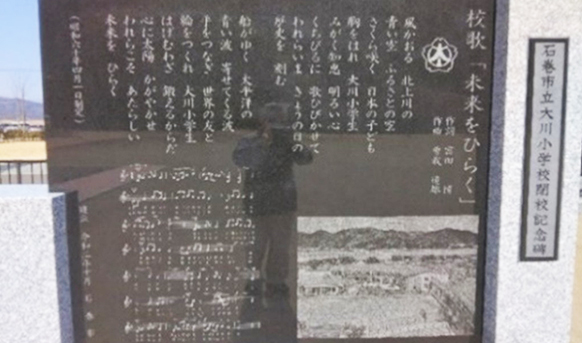 校歌「未来をひらく」
作詞 富田 博
作曲 曽我 道雄
風かおる 北上川の
青い空 ふるさとの空
さくら咲く 日本の子ども
胸をはれ 大川小学生
みがく知恵 明るい心
くちびるに 歌ひびかせて
われらいま きょうの日の
歴史を 刻む
船がゆく 太平洋の
青い波 寄せてくる波
手をつなぎ 世界の友と
輪をつくれ 大川小学生
はげむわざ 鍛えるからだ
心に太陽 かがやかせ
われらこそ あたらしい
未来を ひらく
(昭和六十年四月一日制定)
石巻市立大川小学校閉校記念碑